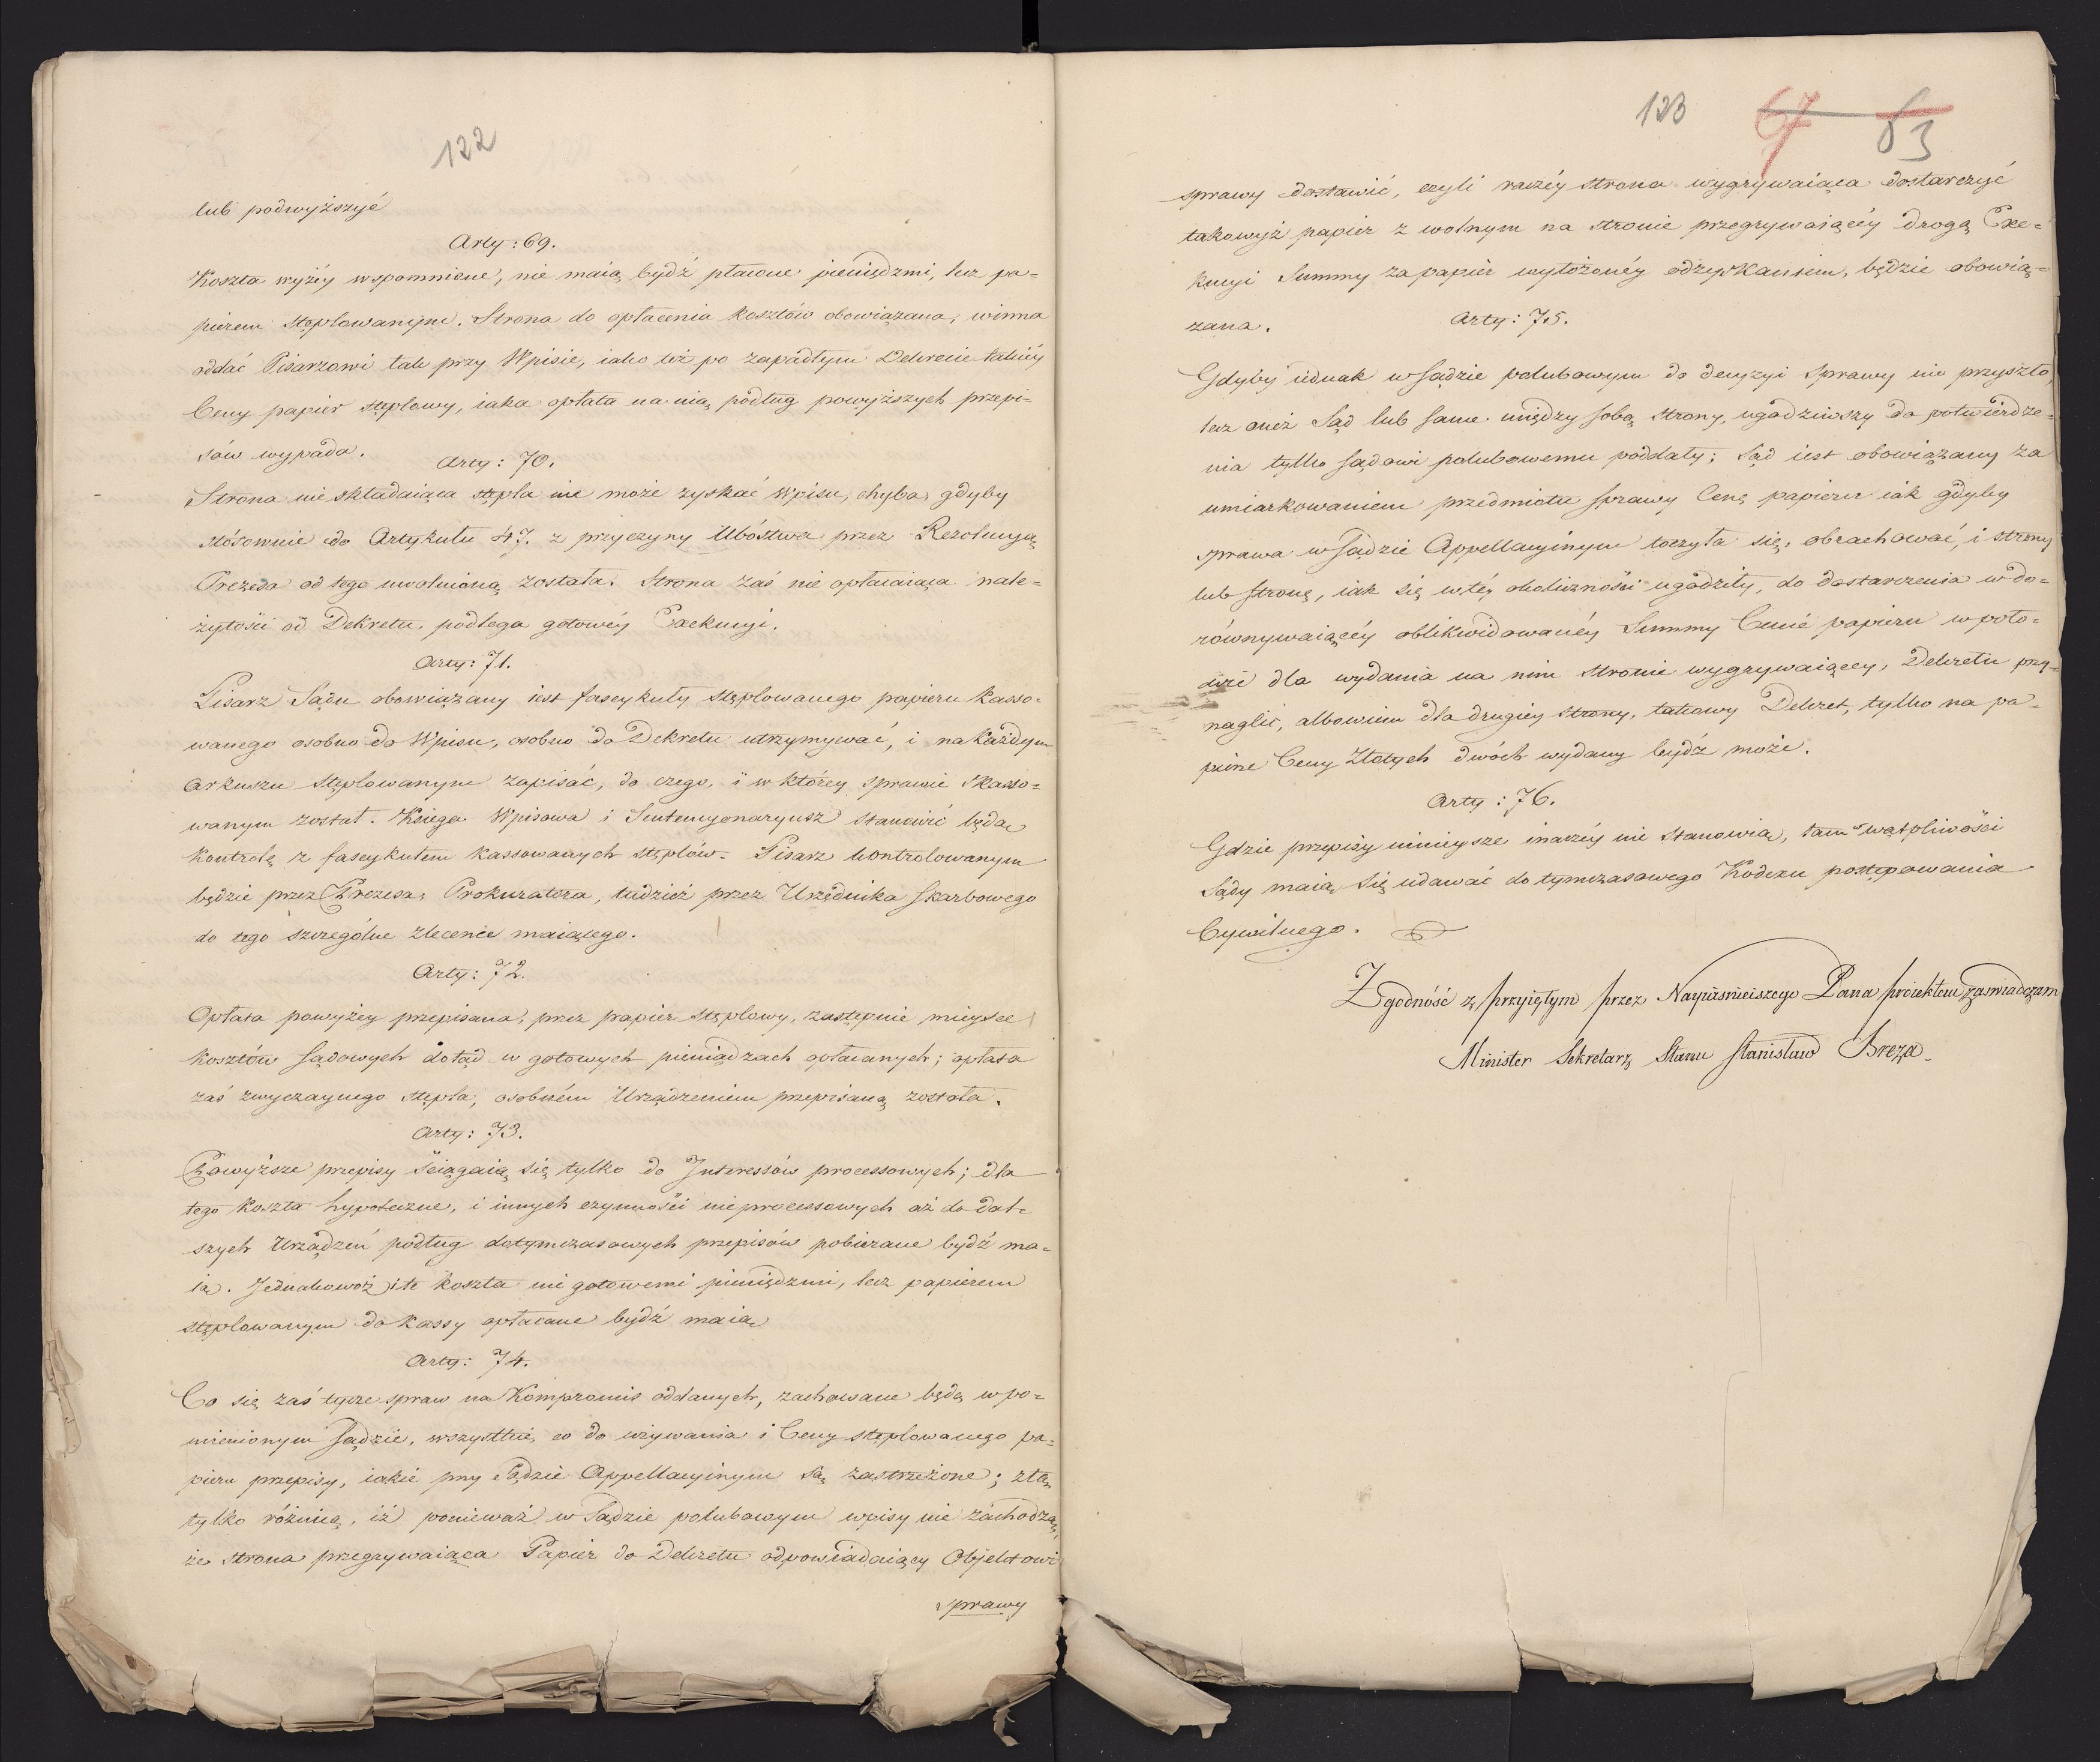 122
lub podwyższyć
Arty: 69.
Koszta wyżéy wspomnione, nie maią bydź płacone pieniędzmi, lecz pa=
pierem stęplowanym. Strona do opłacenia kosztów obowiązana, winna
oddać Pisarzowi tak przy Wpisie, iako też po zapadłym Dekrecie takiéy
Ceny papier stęplowy, iaka opłata na nią podług powyższych przepi=
sów wypada.
Arty: 70.
Strona nie składaiąca stępla nie może zyskać Wpisu, chyba, gdyby
stósownie do Artykułu 47. z przyczyny Ubóstwa przez Rezolucyą
Prezesa od tego uwolnioną została. Strona zaś nie opłacaiąca nale=
żytości od Dekretu, podlega gotowéy Exekucyi.
Arty: 71.
Pisarz Sądu obowiązany iest fascykuły stęplowanego papieru kasso=
wanego osobno do Wpisu, osobno do Dekretu utrzymywać, i na każdym
arkuszu stęplowanym zapisać, do czego, i w którey sprawie skasso=
wanym został. Księga Wpisowa i Sentencyonaryusz stanowić będą
kontrolę z fascykułem kassowanych stęplów. Pisarz kontrolowanym
będzie przez Prezesa, Prokuratora, tudzież przez Urzędnika skarbowego
do tego szczególne zlecenie maiącego.
Arty: 72.
Opłata powyżey przepisana, przez papier stęplowy, zastępuie mieysce
kosztów sądowych dotąd w gotowych pieniądzach opłacanych; opłata
zaś zwyczaynego stępla, osobném Urządzeniem przepisaną została.
Arty: 73.
Powyższe przepisy ściągaią się tylko do Interessów processowych; dla
tego koszta hypoteczne, i innych czynności nieprocessowych aż do dal=
szych Urządzeń podług dotymczasowych przepisów pobierane bydź ma=
ią. Jednakowoż i te koszta nie gotowemi pieniędzmi, lecz papierem
stęplowanym do kassy opłacane bydź maią
Arty: 74.
Co się zaś tycze spraw na Kompromis oddanych, zachowane będą w po=
mienionym sądzie, wszystkie, co do używania i Ceny stęplowanego pa=
pieru przepisy, iakie przy Sądzie Appellacyinym są zastrzeżone; z tą
tylko różnicą, iż ponieważ w Sądzie polubowym wpisy nie zachodzą,
że strona przegrywaiąca Papier do Dekretu odpowiadaiący Objektowi
sprawy
123 67 83
sprawy dostawić, czyli raczéy strona wygrywaiąca dostarczyć
takowyż papier z wolnym na stronie przegrywaiącéy drogą Exe=
kucyi Summy za papier wyłożonéy odzyskaniem, będzie obowią=
zana.
Arty: 75.
Gdyby iednak w sądzie polubowym do decyzyi sprawy nie przyszło,
lecz oneż Sąd lub same między sobą strony, ugodziwszy do potwierdze=
nia tylko sądowi polubowemu poddały; Sąd iest obowiązany za
umiarkowaniem przedmiotu sprawy Cenę papieru iak gdyby
sprawa w Sądzie Appellacyinym toczyła się, obrachować, i strony
lub stronę, iak się w téy okoliczności ugodziły, do dostarczenia w do=
równywaiącéy oblikwidowanéy Summy Cenie papieru w poło=
wie dla wydania na nim stronie wygrywaiącey, Dekretu przy=
naglić, albowiem dla drugiey strony, takowy Dekret, tylko na pa=
pirze Ceny Złotych dwóch wydany bydź może.
Arty: 76.
Gdzie przepisy ninieysze inaczéy nie stanowią, tam w wątpliwości
Sądy maią się udawać do tymczasowego Kodexu postępowania
Cywilnego.
Zgodność z przyiętym przez Nayiaśnieiszego Pana proiektem zaswiadczam
Minister Sekretarz Stanu Stanisław Breza.